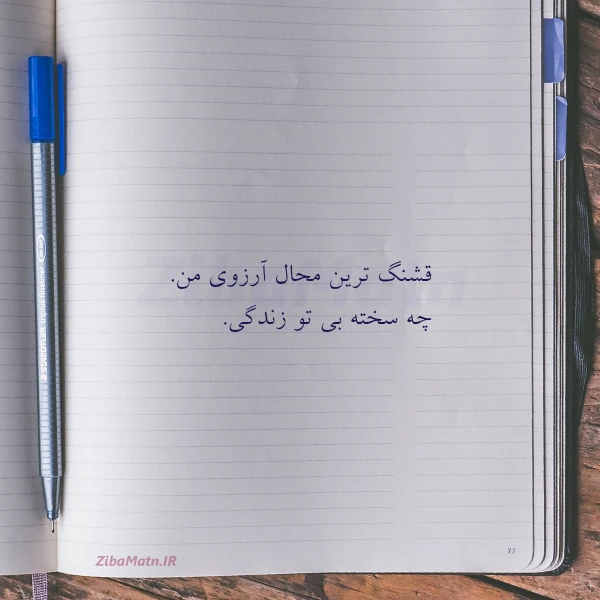 قشنگ ترین محال آرزوی من.
چه سخته بی تو زندگی.
77
ZibaMatn.IR